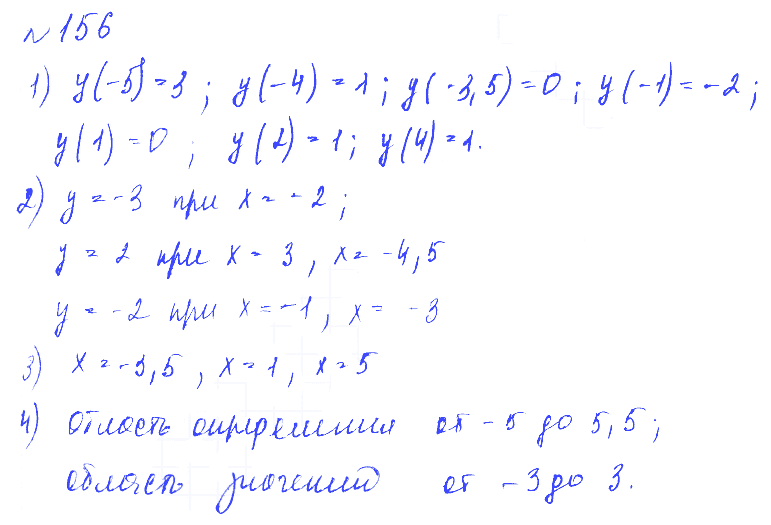 №156
1) y(-5)=3; y(-4)=1; y(-3,5)=0; y(-1)=-2;
y(1)=0; y(2)=1; y(4)=1.
2) y=-3 при x=-2;
y=2 при x=3, x=-4,5
y=-2 при x=-1, x=-3
3) x=-3,5, x=1, x=5
4) Область определения от -5 до 5,5;
область значений от -3 до 3.